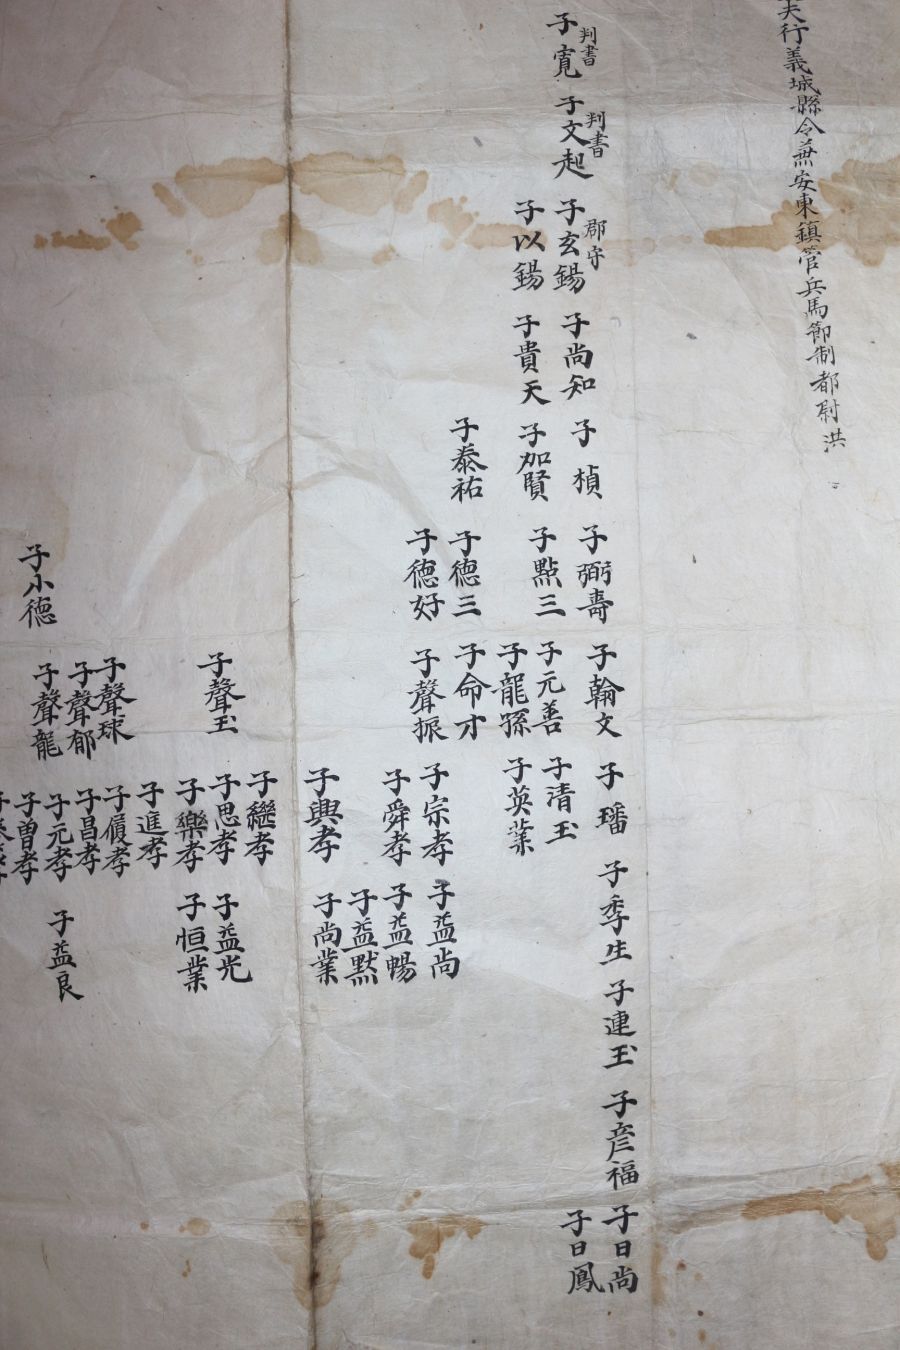 夫行義城縣令兼安東鎮管兵馬節制都尉洪
子寬 判書
子文起 判書
子玄錫 郡守
子以錫
子尚知
子貴天
子楨
子加賢
子泰祐
子弼壽
子點三
子德三
子德好
子小德
子翰文
子元善
子龍孫
子命才
子聲振
子聲玉
子聲球
子聲郁
子聲龍
子璠
子清玉
子英業
子宗孝
子舜孝
子興孝
子繼孝
子思孝
子樂孝
子進孝
子履孝
子昌孝
子元孝
子曾孝
子季生
子益尚
子益暢
子益默
子尚業
子益光
子恒業
子益良
子連玉
子彦福
子日尚
子日鳳